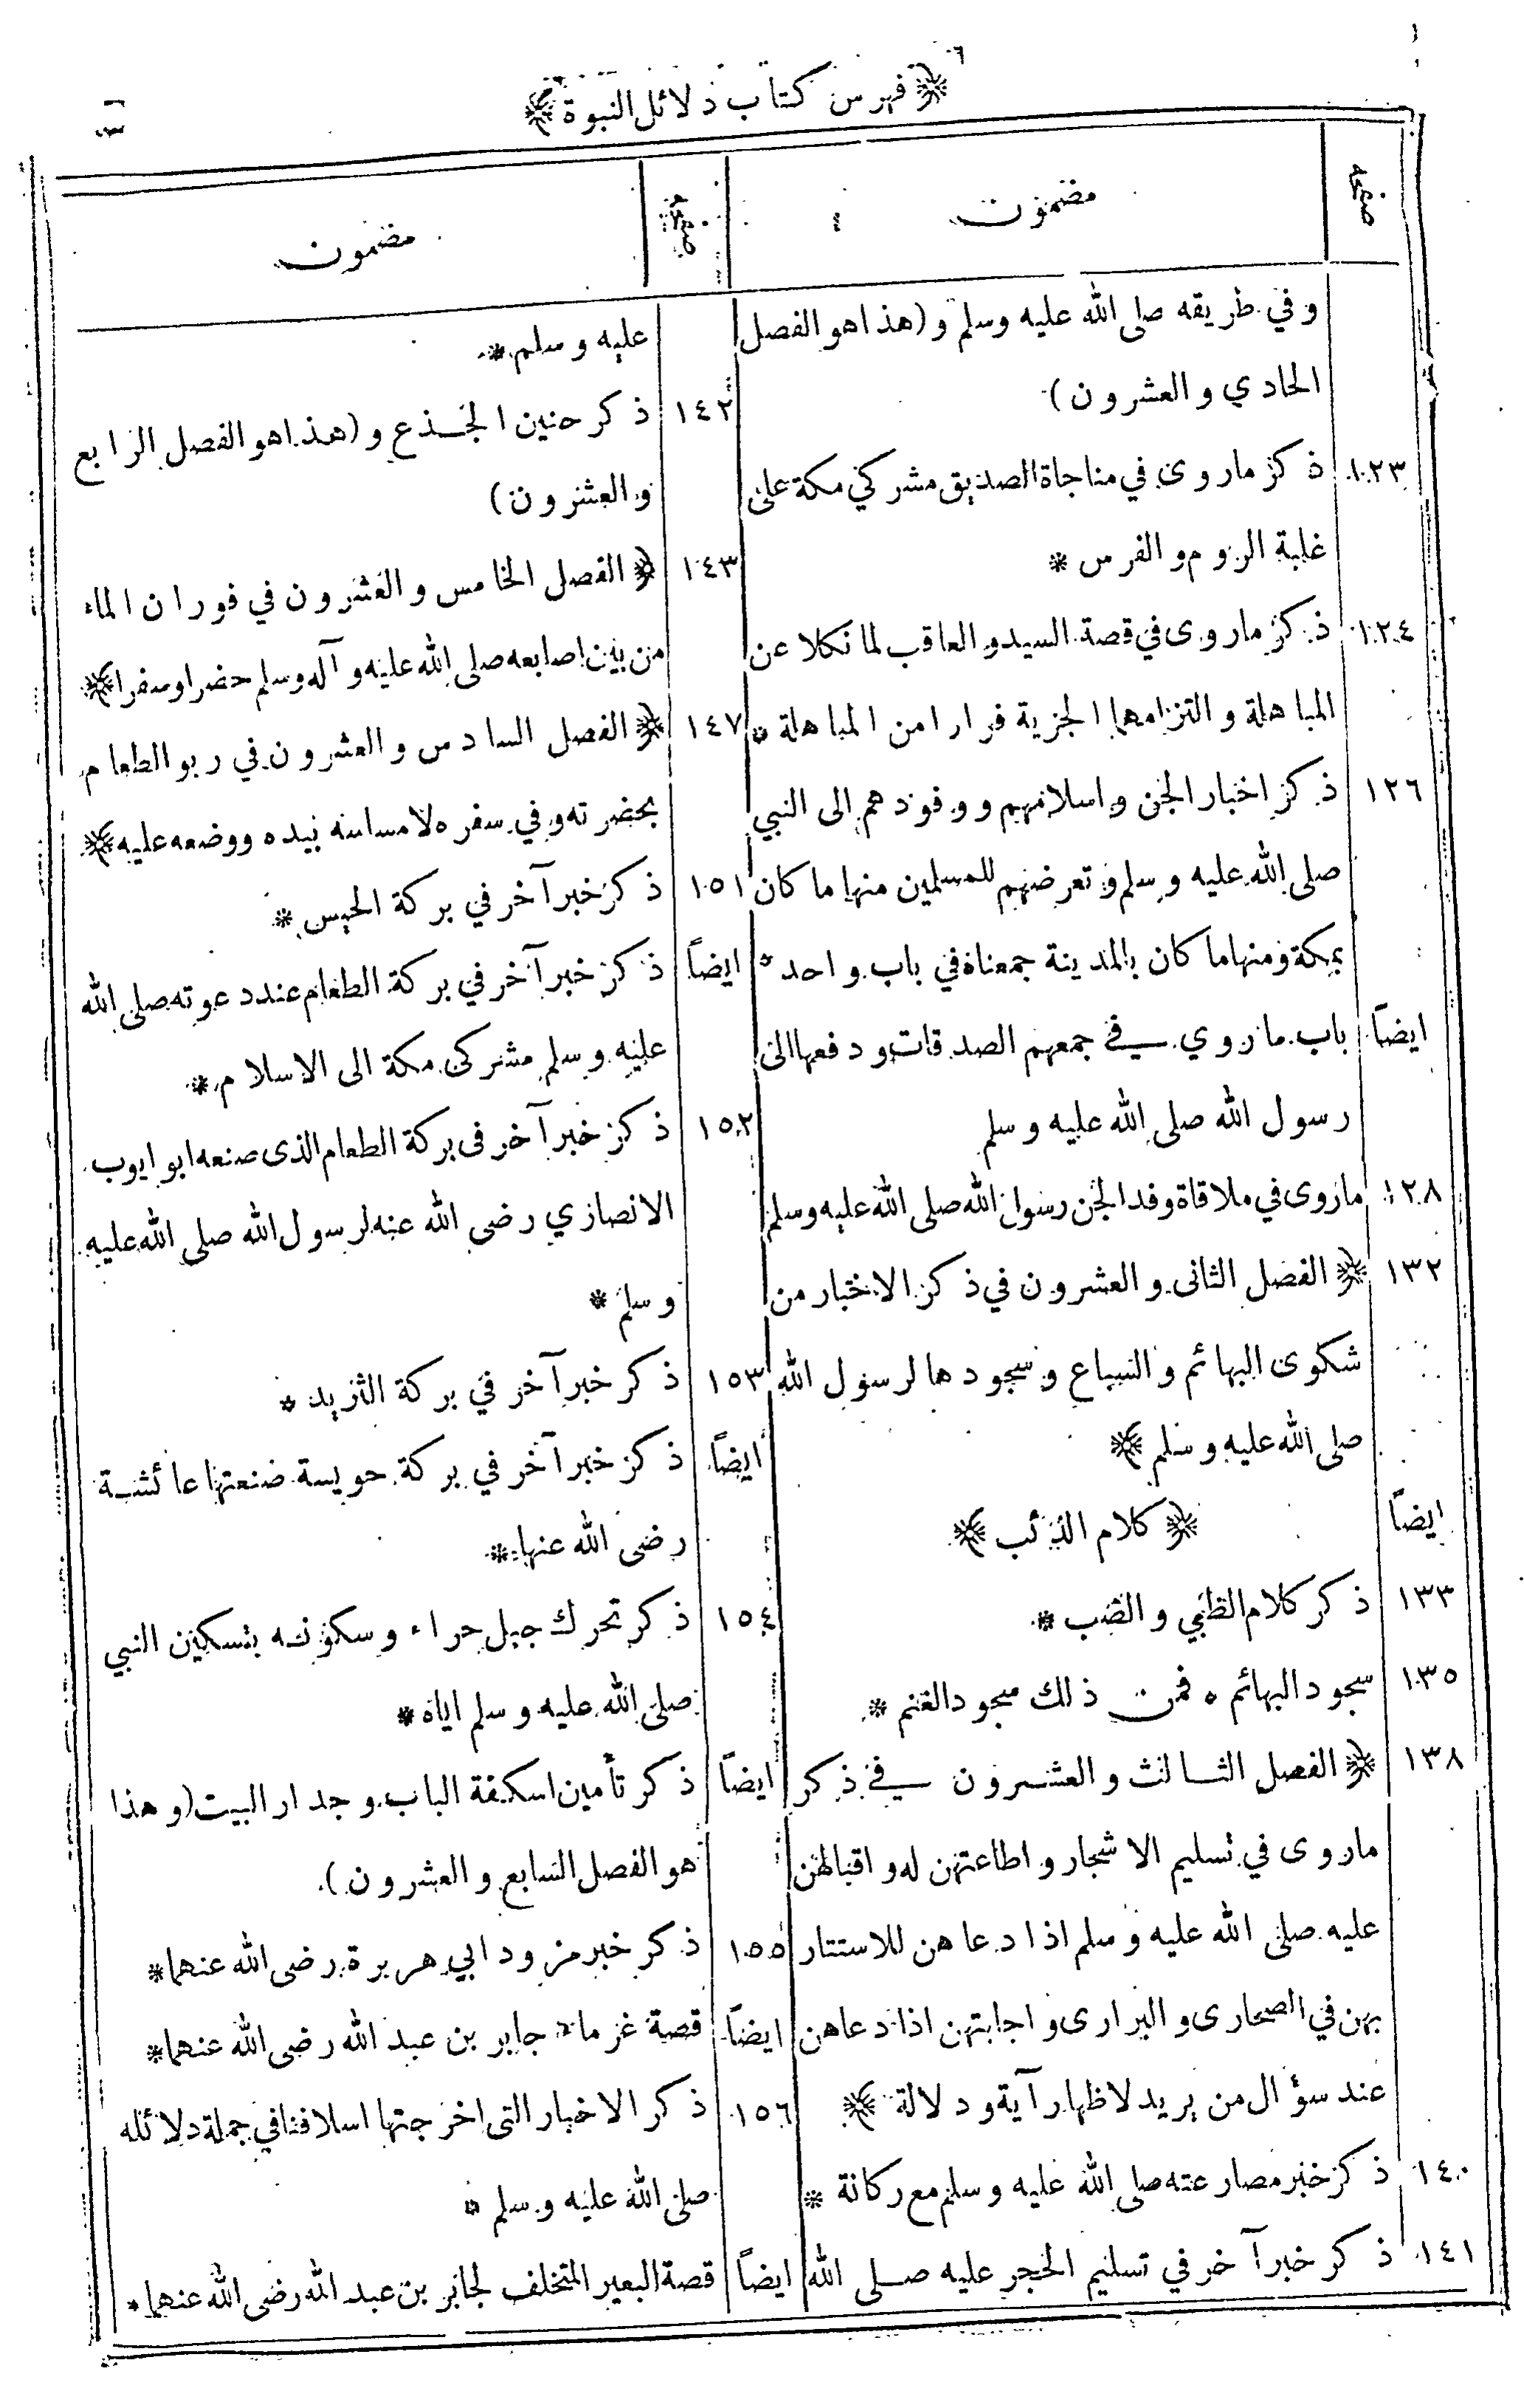 ٦
﴿ فهرس كتاب دلائل النبوة ﴾
صفحه
مضمون
و في طريقه صلى الله عليه وسلم و (هذا هو الفصل
الحادي و العشرون)
١٢٣ ذكر ماروى في مناجاة الصديق مشركي مكة على
غلبة الروم و الفرس *
١٢٤ ذكر ماروى في قصة السيد و العاقب لما نكلا عن
المباهلة و التزامهما الجزية فرارا من المباهلة *
١٢٦ ذكر اخبار الجن و اسلامهم و وفودهم الى النبي
صلى الله عليه و سلم و تعرضهم للمسلمين منها ما كان
بمكة و منها ما كان بالمدينة جمعناه في باب و احد *
ايضاً باب ما روي في جمعهم الصدقات و دفعها الى
رسول الله صلى الله عليه و سلم
١٢٨ ماروى في ملاقاة وفد الجن رسول الله صلى الله عليه وسلم
١٣٢ ﴿ الفصل الثانى و العشرون في ذكر الاخبار من
شكوى البهائم و السباع و سجودها لرسول الله
صلى الله عليه و سلم ﴾
ايضاً ﴿ كلام الذئب ﴾
١٣٣ ذكر كلام الظبي و الضب *
١٣٥ سجود البهائم ٥ فمن ذلك سجود الغنم *
١٣٨ ﴿ الفصل الثالث و العشرون في ذكر
ماروى في تسليم الاشجار و اطاعتهن له و اقبالهن
عليه صلى الله عليه و سلم اذا دعاهن للاستتار
بهن في الصحارى و البرارى و اجابتهن اذا دعاهن
عند سؤال من يريد لاظهار آية و دلالة ﴾
١٤٠ ذكر خبر مصارعته صلى الله عليه و سلم مع ركانة *
١٤١ ذكر خبر آخر في تسليم الحجر عليه صلى الله
صفحه
مضمون
عليه و سلم *
١٤٢ ذكر حنين الجذع و (هذا هو الفصل الرابع
و العشرون)
١٤٣ ﴿ الفصل الخامس و العشرون في فوران الماء
من بين اصابعه صلى الله عليه و آله وسلم حضرا و سفرا ﴾
١٤٧ ﴿ الفصل السادس و العشرون في ربو الطعام
بحضرته و في سفره لامساسه بيده و وضعه عليه ﴾
١٥١ ذكر خبر آخر في بركة الحيس *
ايضاً ذكر خبر آخر في بركة الطعام عند دعوته صلى الله
عليه و سلم مشركى مكة الى الاسلام *
١٥٢ ذكر خبر آخر فى بركة الطعام الذى صنعه ابو ايوب
الانصاري رضى الله عنه لرسول الله صلى الله عليه
و سلم *
١٥٣ ذكر خبر آخر في بركة الثريد *
ايضاً ذكر خبر آخر في بركة حويسة صنعتها عائشة
رضى الله عنها *
١٥٤ ذكر تحرك جبل حراء و سكونه بتسكين النبي
صلى الله عليه و سلم اياه *
ايضاً ذكر تأمين اسكفة الباب و جدار البيت (و هذا
هو الفصل السابع و العشرون)
١٥٥ ذكر خبر مزود ابي هريرة رضى الله عنهما *
ايضاً قصة غرماء جابر بن عبد الله رضى الله عنهما *
١٥٦ ذكر الاخبار التى اخرجتها اسلافنا في جملة دلائله
صلى الله عليه و سلم *
ايضاً قصة البعير المتخلف لجابر بن عبد الله رضى الله عنهما *